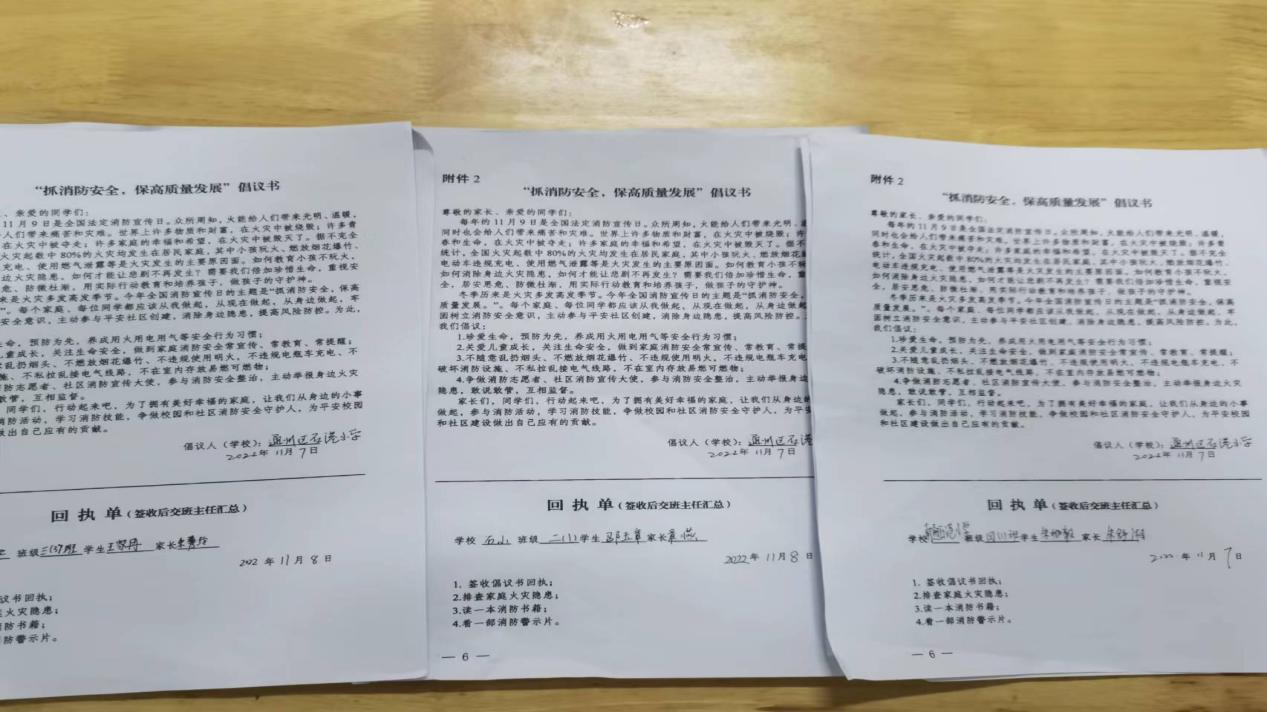 “抓消防安全，保高质量发展”倡议书
、亲爱的同学们：
11月9日是全国法定消防宣传日。众所周知，火能给人们带来光明、温暖，
人们带来痛苦和灾难。世界上许多物质和财富，在大火中被烧毁；许多青
在大火中被夺走；许多家庭的幸福和希望，在大火中被毁灭了。据不完全
火灾起数中80%的火灾均发生在居民家庭，其中小孩玩火、燃放烟花爆竹、
充电、使用燃气泄露等是火灾发生的主要原因面。如何教育小孩不玩火，
边火灾隐患，如何才能让悲剧不再发生？需要我们倍加珍惜生命，重视安
危、防微杜渐，用实际行动教育和培养孩子，做孩子的守护神。
来是火灾多发高发季节。今年全国消防宣传日的主题是“抓消防安全，保高
”。每个家庭、每位同学都应该从我做起，从现在做起，从身边做起，牢
安全意识，主动参与平安社区创建，消除身边隐患，提高风险防控。为此，
生命，预防为先，养成用火用电用气等安全行为习惯；
儿童成长，关注生命安全，做到家庭消防安全常宣传、常教育、常提醒；
意乱扔烟头、不燃放烟花爆竹、不违规使用明火，不违规电瓶车充电、不
、不私拉乱接电气线路，不在室内存放易燃可燃物；
消防志愿者、社区消防宣传大使，参与消防安全整治，主动举报身边火灾
敢管，互相监督。
同学们，行动起来吧，为了拥有美好幸福的家庭，让我们从身边的小事
消防活动，学习消防技能，争做校园和社区消防安全守护人，为平安校园
做出自己应有的贡献。
倡议人（学校）：通州区石港小学
2022年11月7日
回 执 单（签收后交班主任汇总）
班级 学生 家长
202 年11月8日
议书回执；
火灾隐患；
防书籍；
防警示片。
附件2
“抓消防安全，保高质量发展”倡议书
尊敬的家长、亲爱的同学们：
每年的11月9日是全国法定消防宣传日。众所周知，火能给人们带来光明、
同时也会给人们带来痛苦和灾难。世界上许多物质和财富，在大火中被烧毁；许
春和生命，在大火中被夺走；许多家庭的幸福和希望，在大火中被毁灭了。据不
统计，全国火灾起数中80%的火灾均发生在居民家庭，其中小孩玩火、燃放烟花
电动车违规充电、使用燃气泄露等是火灾发生的主要原因面。如何教育小孩不
如何消除身边火灾隐患，如何才能让悲剧不再发生？需要我们倍加珍惜生命，重
全，居安思危、防微杜渐，用实际行动教育和培养孩子，做孩子的守护神。
冬季历来是火灾多发高发季节。今年全国消防宣传日的主题是“抓消防安全，
质量发展”。每个家庭、每位同学都应该从我做起，从现在做起，从身边做起，
固树立消防安全意识，主动参与平安社区创建，消除身边隐患，提高风险防控。
我们倡议：
1.珍爱生命，预防为先，养成用火用电用气等安全行为习惯；
2.关爱儿童成长，关注生命安全，做到家庭消防安全常宣传、常教育、常提
3.不随意乱扔烟头、不燃放烟花爆竹、不违规使用明火，不违规电瓶车充电
破坏消防设施、不私拉乱接电气线路，不在室内存放易燃可燃物；
4.争做消防志愿者、社区消防宣传大使，参与消防安全整治，主动举报身边
隐患，敢说敢管，互相监督。
家长们，同学们，行动起来吧，为了拥有美好幸福的家庭，让我们从身边的
做起，参与消防活动，学习消防技能，争做校园和社区消防安全守护人，为平安
和社区建设做出自己应有的贡献。
倡议人（学校）：通州区石港小
2022年11月7日
回 执 单（签收后交班主任汇总）
学校 石小 班级 二(1) 学生 家长
2022年11月8日
1. 签收倡议书回执；
2.排查家庭火灾隐患；
3.读一本消防书籍；
4.看一部消防警示片。
— 6 —
附件2
“抓消防安全，保高质量发展”倡议书
尊敬的家长、亲爱的同学们：
每年的11月9日是全国法定消防宣传日。众所周知，火能给人们带来光明、温暖，
同时也会给人们带来痛苦和灾难。世界上许多物质和财富，在大火中被烧毁；许多青
春和生命，在大火中被夺走；许多家庭的幸福和希望，在大火中被毁灭了。据不完全
统计，全国火灾起数中80%的火灾均发生在居民家庭，其中小孩玩火、燃放烟花爆竹、
电动车违规充电、使用燃气泄露等是火灾发生的主要原因面。如何教育小孩不玩火，
如何消除身边火灾隐患，如何才能让悲剧不再发生？需要我们倍加珍惜生命，重视安
全，居安思危、防微杜渐，用实际行动教育和培养孩子，做孩子的守护神。
冬季历来是火灾多发高发季节。今年全国消防宣传日的主题是“抓消防安全，保高
质量发展”。每个家庭、每位同学都应该从我做起，从现在做起，从身边做起，牢
固树立消防安全意识，主动参与平安社区创建，消除身边隐患，提高风险防控。为此，
我们倡议：
1.珍爱生命，预防为先，养成用火用电用气等安全行为习惯；
2.关爱儿童成长，关注生命安全，做到家庭消防安全常宣传、常教育、常提醒；
3.不随意乱扔烟头、不燃放烟花爆竹、不违规使用明火，不违规电瓶车充电、不
破坏消防设施、不私拉乱接电气线路，不在室内存放易燃可燃物；
4.争做消防志愿者、社区消防宣传大使，参与消防安全整治，主动举报身边火灾
隐患，敢说敢管，互相监督。
家长们，同学们，行动起来吧，为了拥有美好幸福的家庭，让我们从身边的小事
做起，参与消防活动，学习消防技能，争做校园和社区消防安全守护人，为平安校园
和社区建设做出自己应有的贡献。
倡议人（学校）：通州区石港小学
2022年11月7日
回 执 单（签收后交班主任汇总）
学校 班级 学生 家长
2022年11月7日
1. 签收倡议书回执；
2.排查家庭火灾隐患；
3.读一本消防书籍；
4.看一部消防警示片。
— 6 —